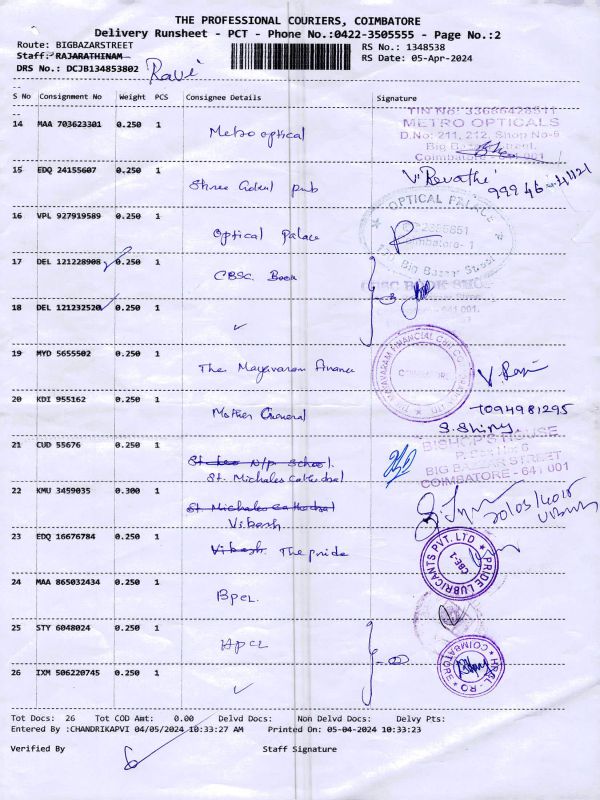 THE PROFESSIONAL COURIERS, COIMBATORE
Delivery Runsheet - PCT - Phone No.:0422-3505555 - Page No.:2
Route: BIGBAZARSTREET RS No.: 1348538
Staff: RAJARATHINAM RS Date: 05-Apr-2024
DRS No.: DCJB134853802 Ravi
S No Consignment No Weight PCS Consignee Details Signature
14 MAA 703623301 0.250 1 Metro optical
METRO OPTICALS
D.No: 211, 212, Shop No-6
Big Bazaar Street,
Coimbatore - 641 001
15 EDQ 24155607 0.250 1 Shree Gokul pub V. Revathi
16 VPL 927919589 0.250 1 Optical Palace
OPTICAL PALACE
Coimbatore- 1
Big Bazaar Street
17 DEL 121228908 0.250 1 CBSC Book
18 DEL 121232520 0.250 1 ✓
19 MYD 5655502 0.250 1 The Mayavaram Finance
COIMBATORE
20 KDI 955162 0.250 1 Mother General
7094981295
S. Shiny
21 CUD 55676 0.250 1
St. Michales Cathedral
BISHOP'S HOUSE
BIG BAZAAR STREET
COIMBATORE - 641 001
22 KMU 3459035 0.300 1 St Michales Cathedral
Vikash
23 EDQ 16676784 0.250 1 Vikash The pride
PRIDE LUBRICANTS PVT. LTD
CBE-1
24 MAA 865032434 0.250 1 BPCL
25 STY 6048024 0.250 1 HPCL
26 IXM 506220745 0.250 1 ✓
COIMBATORE
Tot Docs: 26 Tot COD Amt: 0.00 Delvd Docs: Non Delvd Docs: Delvy Pts:
Entered By :CHANDRIKAPVI 04/05/2024 10:33:27 AM Printed On: 05-04-2024 10:33:23
Verified By Staff Signature